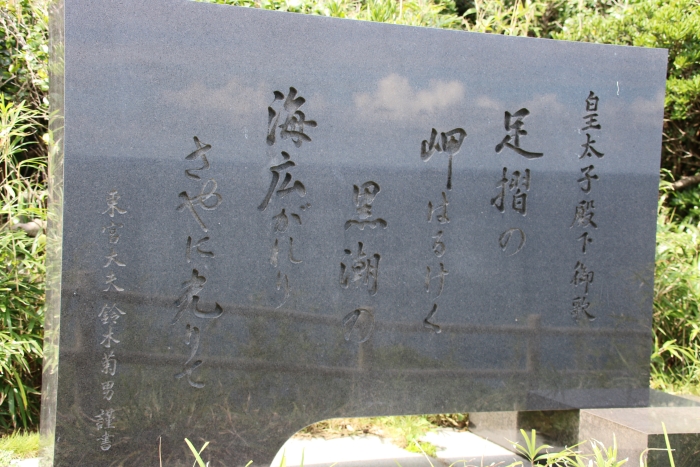 皇太子殿下御歌
足摺の
岬はるけく
黒潮の
海広がれり
さやに光りて
東宮大夫 鈴木菊男 謹書